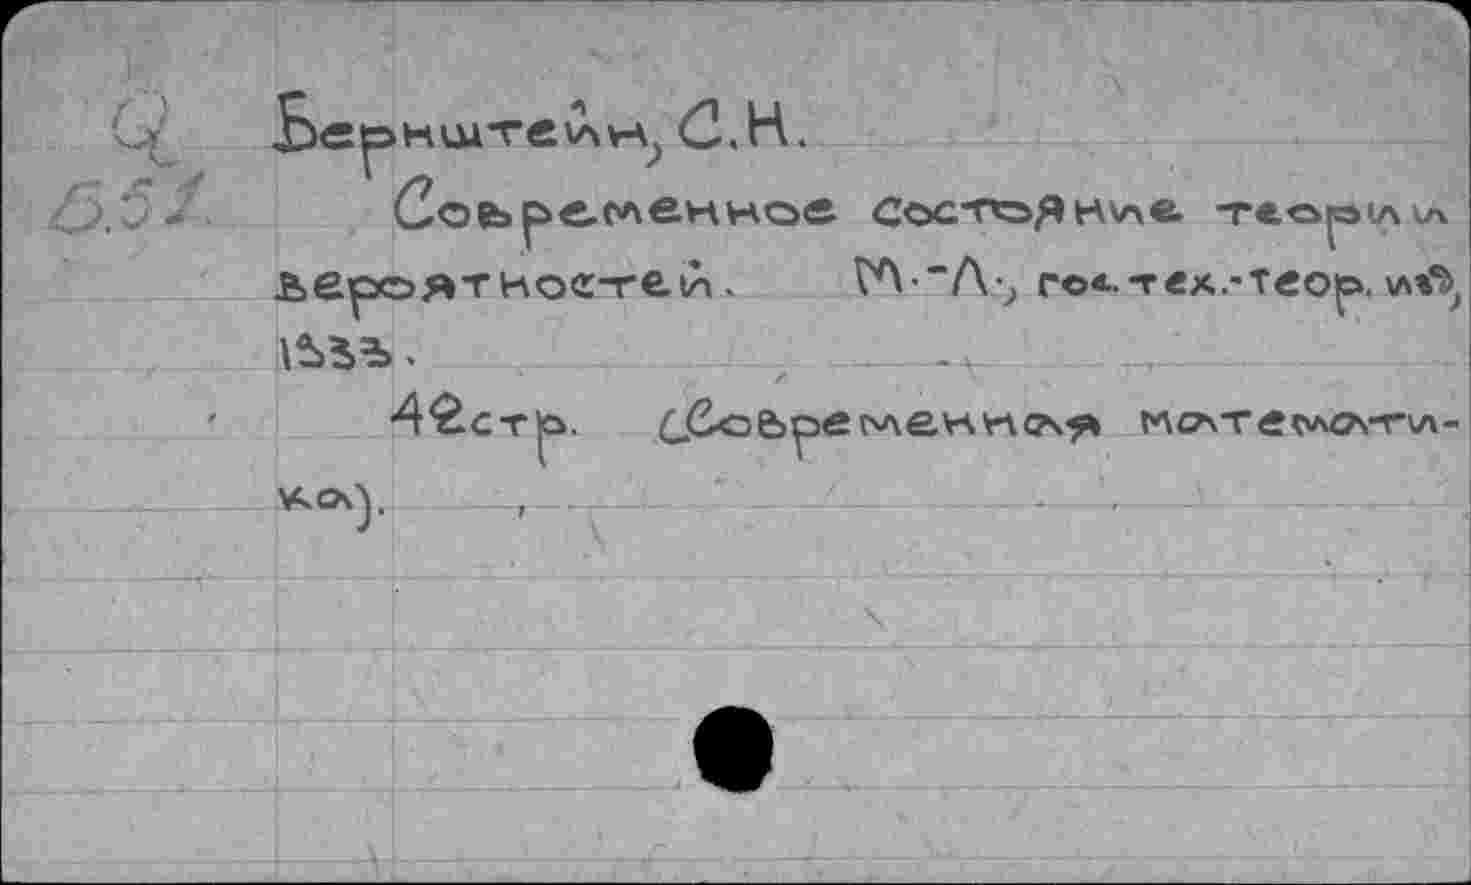 Бернштейн, С.Н.
Современное состояние теории
вероятностей. М.-Л., гос. тех.-теор. изд,
1933.
42стр. (Современная математи-
ка).